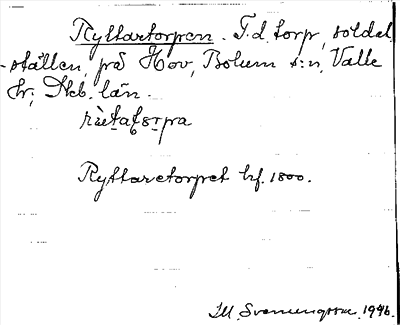 Ryttartorpen. F.d. torp, soldat
-ställen, på Hov, Bolum s:n, Valle
hd, Skb. län.
Ryttaretorpet hf. 1800.
M. Svenungsson 1946.